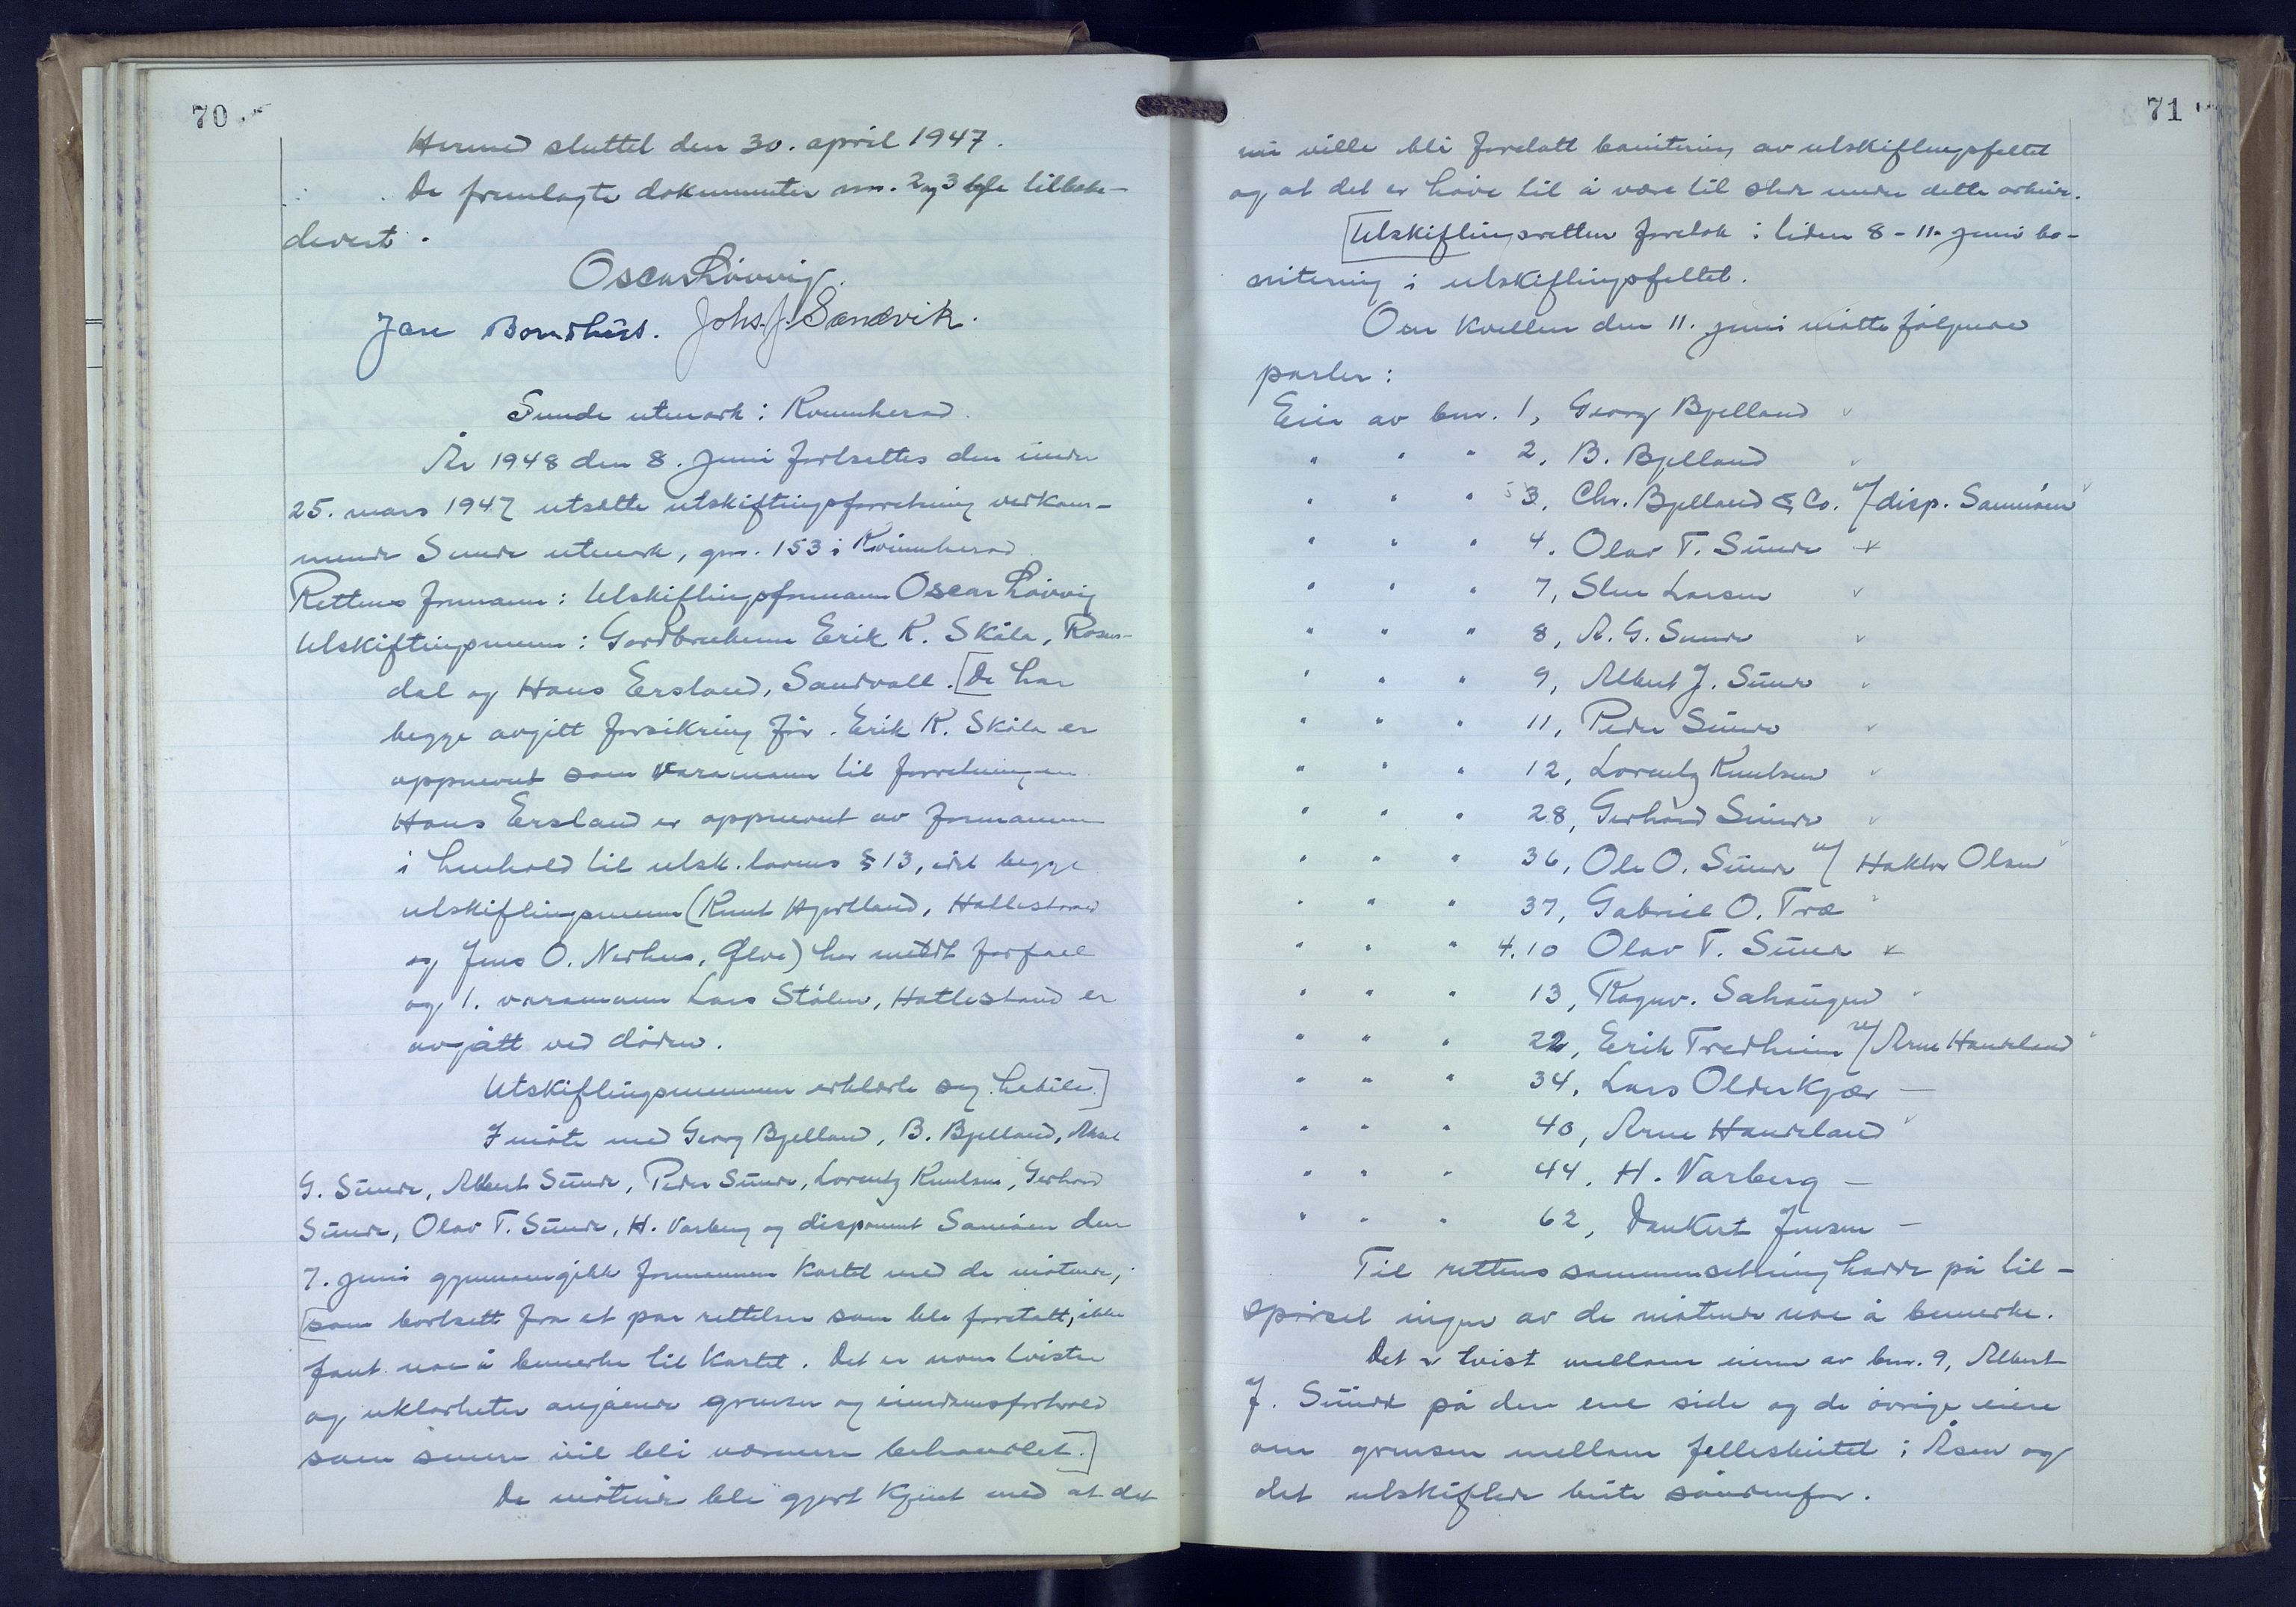 70
Hermed sluttet den 30. april 1947.
De fremlagte dokumenter nr. 2 og 3 ble tilbake-
levert.
Oscar Løvvig.
Johs. J. Sandvik.
Sunde utmark i Kvinnherad.
År 1948 den 8. juni fortsettes den under
25. mars 1947 utsatte utskiftingsforretning vedkom-
mende Sunde utmark, gnr. 153 i Kvinnherad
Rettens formann: Utskiftingsformann Oscar Løvvig
Utskiftingsmenn: Gardbrukerne Erik K. Skåla, Rosen-
dal og Hans Ersland, Sandvoll. [De har
begge avgitt forsikring før. Erik K. Skåla er
oppnevnt som varamann til forretningen
Hans Ersland er oppnevnt av formannen
i henhold til utsk. lovens § 13, idet begge
utskiftingsmenn (Knut Hjortland, Hatlestrand
og Jens O. Nerhus, Ølve) har meldt forfall
og 1. varamann Lars Stølen, Hatlestrand er
avgått ved døden.
Utskiftingsmennene erklærte seg habile.]
I møte med Georg Bjelland, B. Bjelland, Aksel
G. Sunde, Albert Sunde, Peder Sunde, Lorentz Knutsen, Gerhard
Sunde, Olav T. Sunde, H. Varberg og disponent Samuelsen den
7. juni gjennomgikk formannen kartet med de møtende,
[som bortsett fra et par rettelser som ble foretatt, ikke
fant noe å bemerke til kartet. Det er noen tvister
og uklarheter angående grenser og eiendomsforhold
som senere vil bli nærmere behandlet.]
De møtende ble gjort kjent med at det
71
nu ville bli foretatt bonitering av utskiftingsfeltet
og at det er høve til å være til stede under dette arbeide.
[Utskiftingsretten foretok i tiden 8 - 11. juni bo-
nitering i utskiftingsfeltet.
Om kvellen den 11. juni møtte følgende
parter:
Eier av bnr. 1, Georg Bjelland v
" " " 2, B. Bjelland v
" " " 3, Chr. Bjelland & Co. v/ disp. v
" " " 4. Olav T. Sunde +
" " " 7, Sten Larsen v
" " " 8, A. G. Sunde v
" " " 9, Albert J. Sunde v
" " " 11, Peder Sunde v
" " " 12, Lorentz Knutsen v
" " " 28, Gerhard Sunde v
" " " 36, Ole O. Sunde v/ Haktor Olsen v
" " " 37, Gabriel O. Træ v
" " " 4.10 Olav T. Sunde x
" " " 13, Ragnv. Sahaugen v
" " " 22, Erik Tredheim v/ Arne Handeland v
" " " 34, Lars Olderkjær —
" " " 40, Arne Handeland v
" " " 44, H. Varberg —
" " " 62, Dankert Jensen —
Til rettens sammensetning hadde på til-
spørsel ingen av de møtende noe å bemerke.
Det er tvist mellom eieren av bnr. 9, Albert
J. Sunde på den ene side og de øvrige eiere
om grensen mellom fellesbeitet i Åsen og
det utskiftede beite sønnenfor.